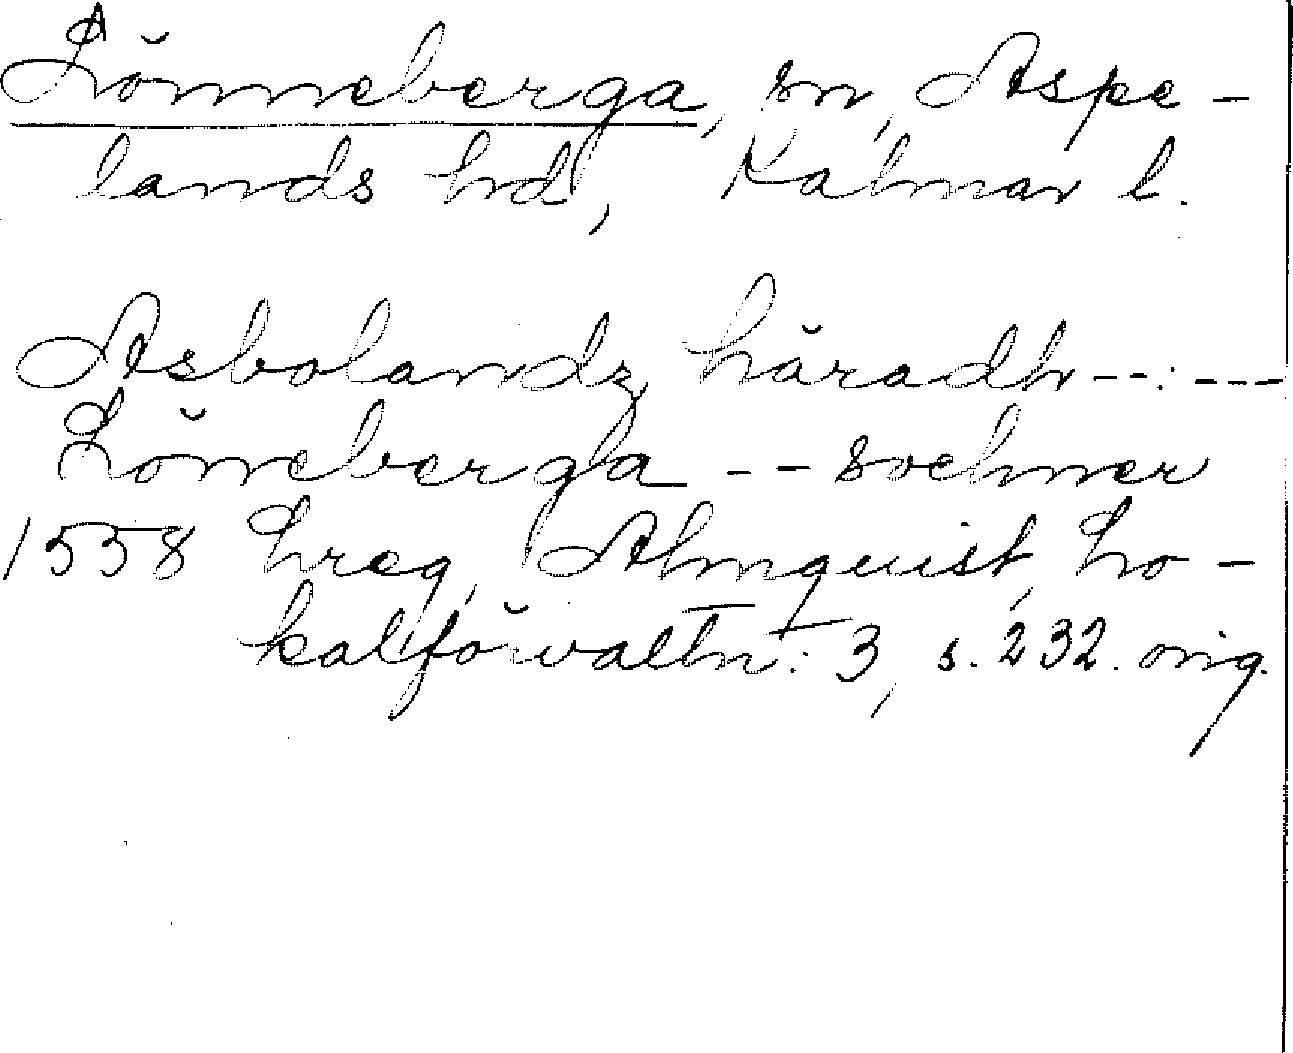 Lönneberga, sn, Aspe-
lands hd, Kalmar l.
Asbolandz häradh --:---
Lönneberga -- sochner
1558 hreg, Almquist, Lo-
kalförvaltn: 3, s. 232. orig.